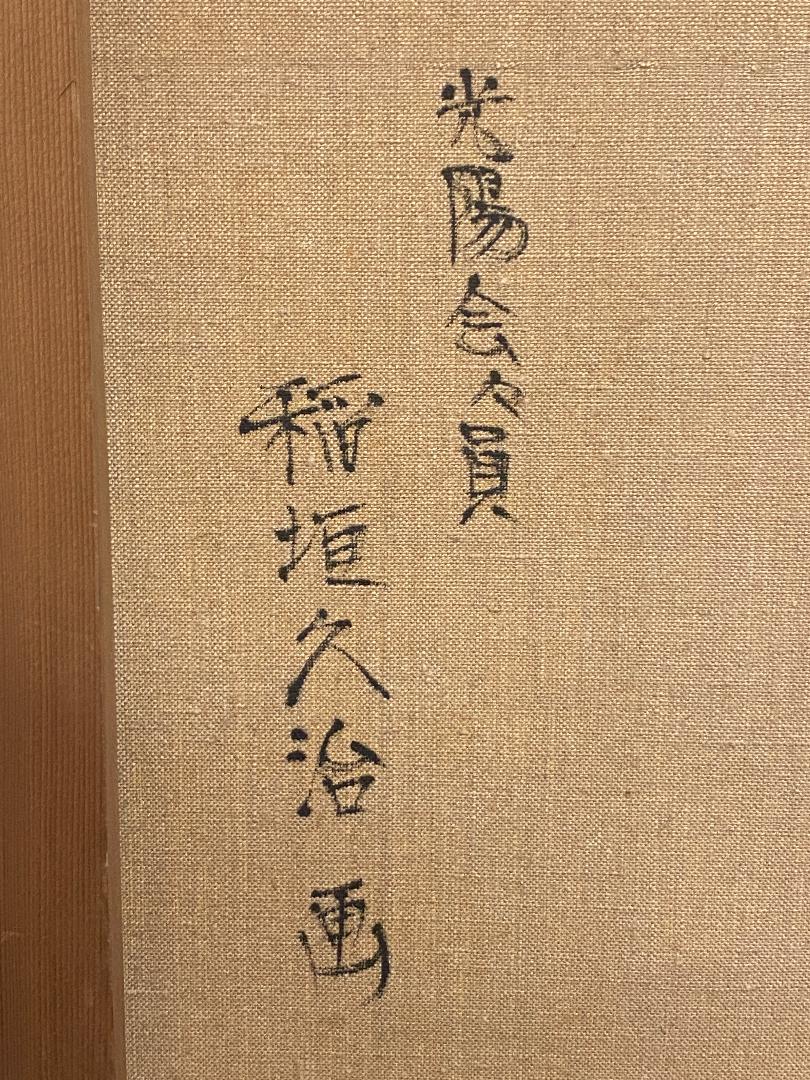 光陽会々員
稲垣久治 画